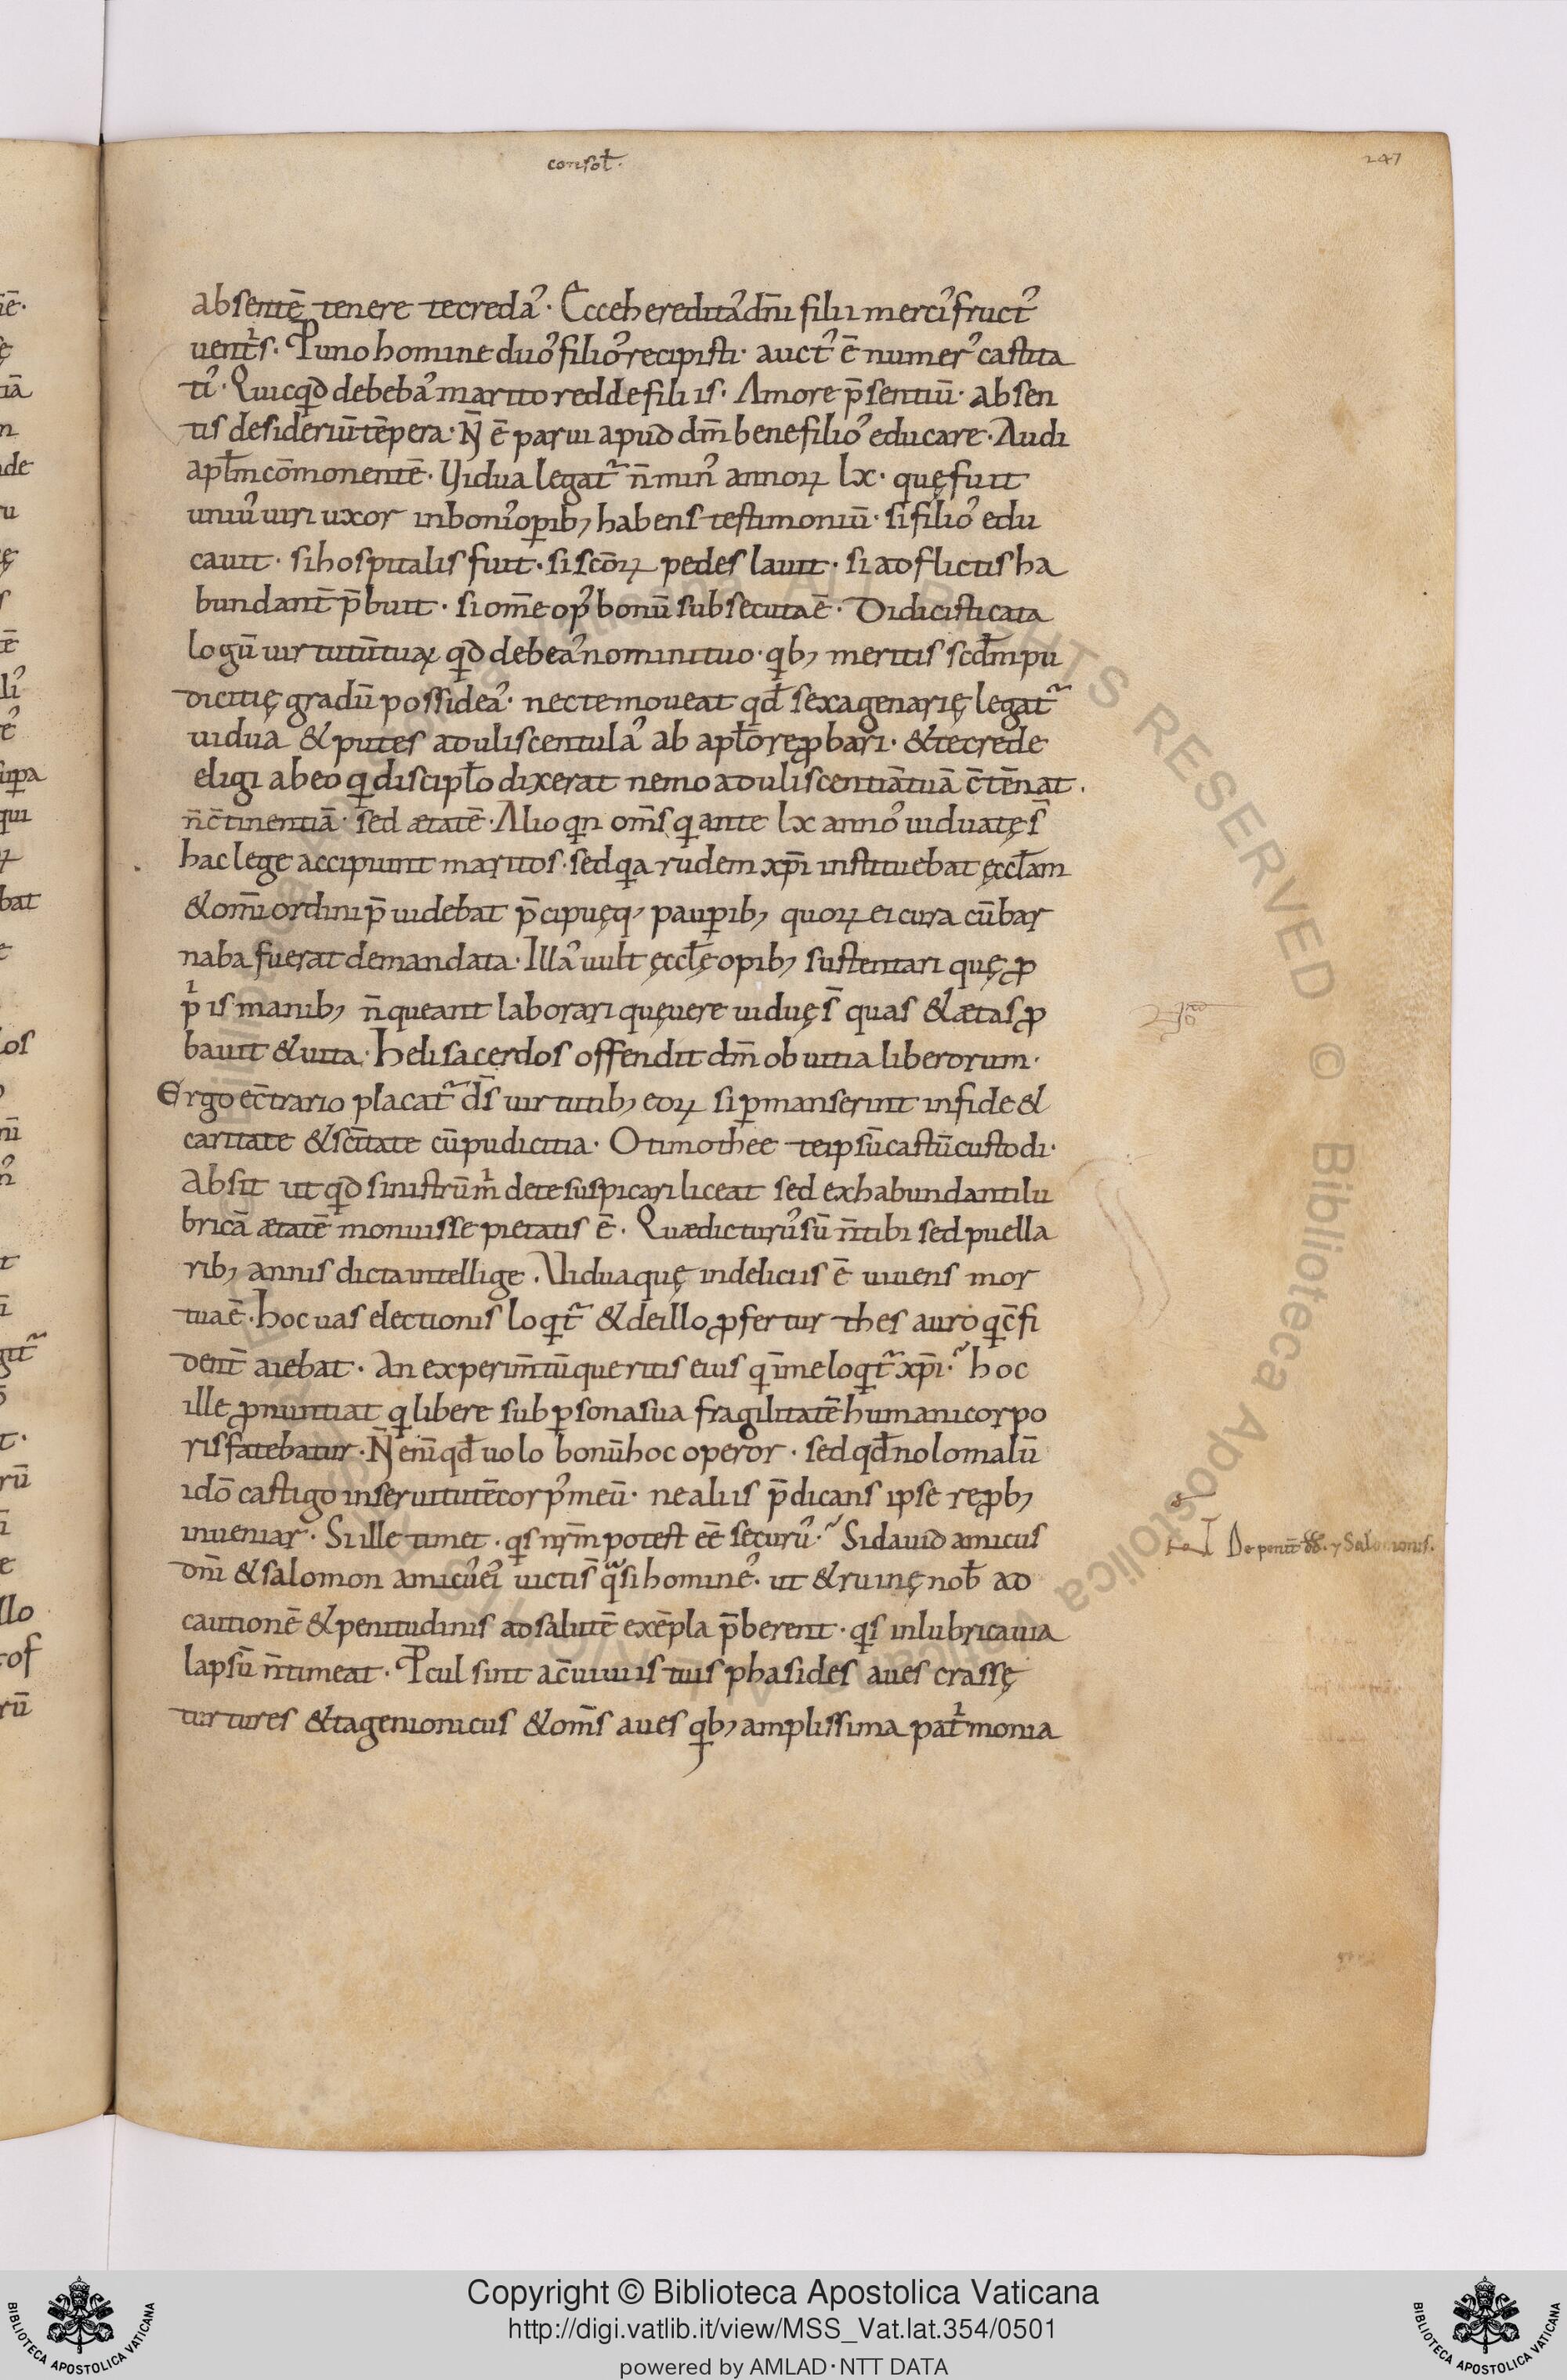 consoł·
247
absentē tenere tecredaꝰ· Ecce hereditaꝰ dn̄i filii merciꝰ fructꝰ
uentͥs· Ꝓ uno homine duoꝰ filioꝰ recipisti· auctꝰ ē numerꝰ castita
tiꝰ· Quicqͥd debebaꝰ marito redde filiis· Amore p̄sentiū· absen
tis desideriū tēpera· N̄ ē parui apud dm̄ bene filioꝰ educare· Audi
apłm cōmonentē· Vidua legat᷑ n̄ minꝰ annoꝝ lx· quę fuit
uniuꝰ uiri uxor in boniꝰ oꝑibꝫ habens testimoniū· si filioꝰ edu
cauit· si hospitalis fuit· si sc̄oꝝ pedes lauit· si adflictis ha
bundant̄ p̄buit· si om̄e opꝰ bonū subsecuta ē· Didicisti cata
logū uirtutū tuaꝝ qͥd debeaꝰ nomini tuo· qͥbꝫ meritis scd̄m pu
dicitię gradū possideaꝰ· nec te moueat qd̄ sexagenarię legat᷑
uidua & putes aduliscentulaꝰ ab apłō reꝓbari· & te crede
eligi ab eo qͥ discipło dixerat nemo aduliscentiā tuā c̄tēnat·
n̄ c̄tinentiā· sed ætatē· Alioqͥn om̄s qͥ ante lx annoꝰ uiduatę s̄
hac lege accipiunt maritos· sed qͥa rudem xp̄i instituebat ęccłam
& om̄i ordini p̄uidebat p̄cipuęqꝫ pauꝑibꝫ quoꝝ ei cura cū bar
naba fuerat demandata· Illaꝰ uult ęccłę opibꝫ sustentari quę ꝓ
pͥis manibꝫ n̄ queant laborari quę uere uiduę s̄ quas & ætas ꝓ
bauit & uita· Heli sacerdos offendit dm̄ ob uitia liberorum·
Ergo ec̄trario placat᷑ ds̄ uirtutibꝫ eoꝝ si ꝑmanserint in fide &
caritate & sc̄itate cū pudicitia· O timothee te ipsū castū custodi·
Absit ut qͥd sinistrū mͥ de te suspicari liceat sed ex habundanti lu
bricā ætatē monuisse pietatis ē· Quæ dicturuꝰ sū n̄ tibi sed puella
ribꝫ annis dicta intellige· Vidua quę in deliciis ē uiuens mor
tua ē· Hoc uas electionis loqͥt᷑ & de illo ꝓfertur thesauro qͥ c̄fi
dent̄ aiebat· An experim̄tū queritis eius qͥ in me loqͥt᷑ xp̄i· hoc
ille ꝓnuntiat qͥ libere sub ꝑsona sua fragilitatē humani corpo
ris fatebatur· N̄ eni᷑ qd̄ uolo bonū hoc operor· sed qd̄ nolo malū
idō castigo in seruitutē corpꝰ meū· ne aliis p̄dicans ipse reꝓbꝫ
inueniar· Si ille timet· qͥs nr̄m potest ēē securuꝰ· Si dauid amicus
dn̄i & salomon amicuꝰ eiꝰ uicti s̄ qᷓsi homineꝰ· ut & ruinę nob̄ ad
cautionē & penitudinis ad salutē exēpla p̄berent· qͥs in lubrica uia
lapsū n̄ timeat· Ꝓcul sint a c̄uiuiis tuis phasides aues crassę
turtures & tagenionicus & om̄s aues qͥbꝫ amplissima patͥmonia
De penit̄ dd· ⁊ Salomonis·
Copyright © Biblioteca Apostolica Vaticana
http://digi.vatlib.it/view/MSS_Vat.lat.354/0501
powered by AMLAD·NTT DATA
BIBLIOTECA APOSTOLICA VATICANA
BIBLIOTECA APOSTOLICA VATICANA